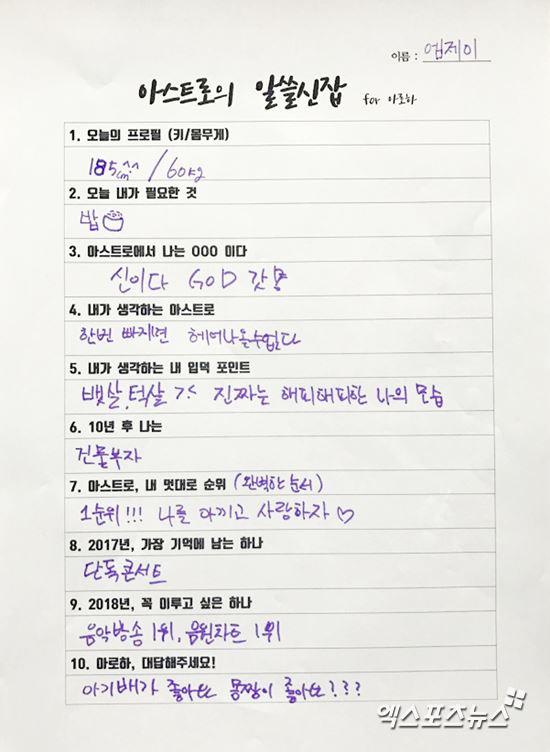 이름 : 엠제이
아스트로의 알쓸신잡 for 아로하
1. 오늘의 프로필 (키/몸무게)
185cm^^ / 60kg
2. 오늘 내가 필요한 것
밥
3. 아스트로에서 나는 OOO 이다
신이다 GOD 갓
4. 내가 생각하는 아스트로
한번 빠지면 헤어나올수없다
5. 내가 생각하는 내 입덕 포인트
뱃살, 턱살 ㅋㅋ 진짜는 해피해피한 나의 모습
6. 10년 후 나는
건물부자
7. 아스트로, 내 멋대로 순위 (완벽한 순서)
1순위!!! 나를 아끼고 사랑하자 ♡
8. 2017년, 가장 기억에 남는 하나
단독콘서트
9. 2018년, 꼭 이루고 싶은 하나
음악방송 1위, 음원차트 1위
10. 아로하, 대답해주세요!
아기배가 좋아요 몸짱이 좋아요???
엑스포츠뉴스